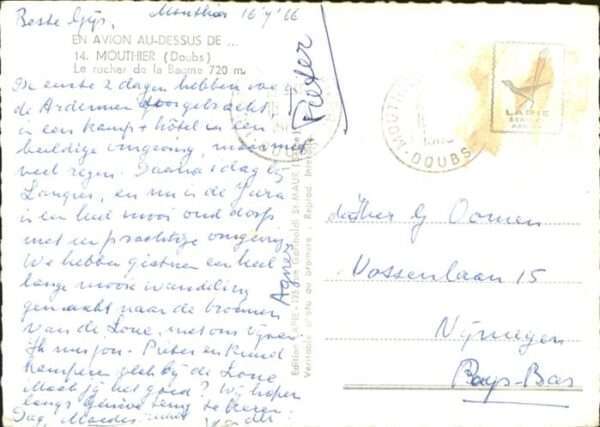 Beste Gijs, Mouthier 16/7/66
EN AVION AU-DESSUS DE ...
14. MOUTHIER (Doubs)
Le rocher de la Baume 720 m.
De eerste 2 dagen hebben we in
de Ardennen doorgebracht
in een kamp + hôtel in een
heeldige omgeving, maar met
veel regen. Daarna 1 dag bij
Langres, en nu in de Jura
in een heel mooi oud dorp
met een prachtige omgeving
We hebben gisteren een heel
lange mooie wandeling
gemaakt naar de bronnen
van de Loue, met ons vijven
Pieter en Ruud
kamperen vlak bij de Loue
Maak jij het goed? Wij hopen
langs Genève terug te keren.
Dag, Moeder
Pieter
Agnes
Edition LAPIE
MOUTHIER
DOUBS
LAPIE
Gijs Oomen
Vossenlaan 15
Nijmegen
Pays-Bas